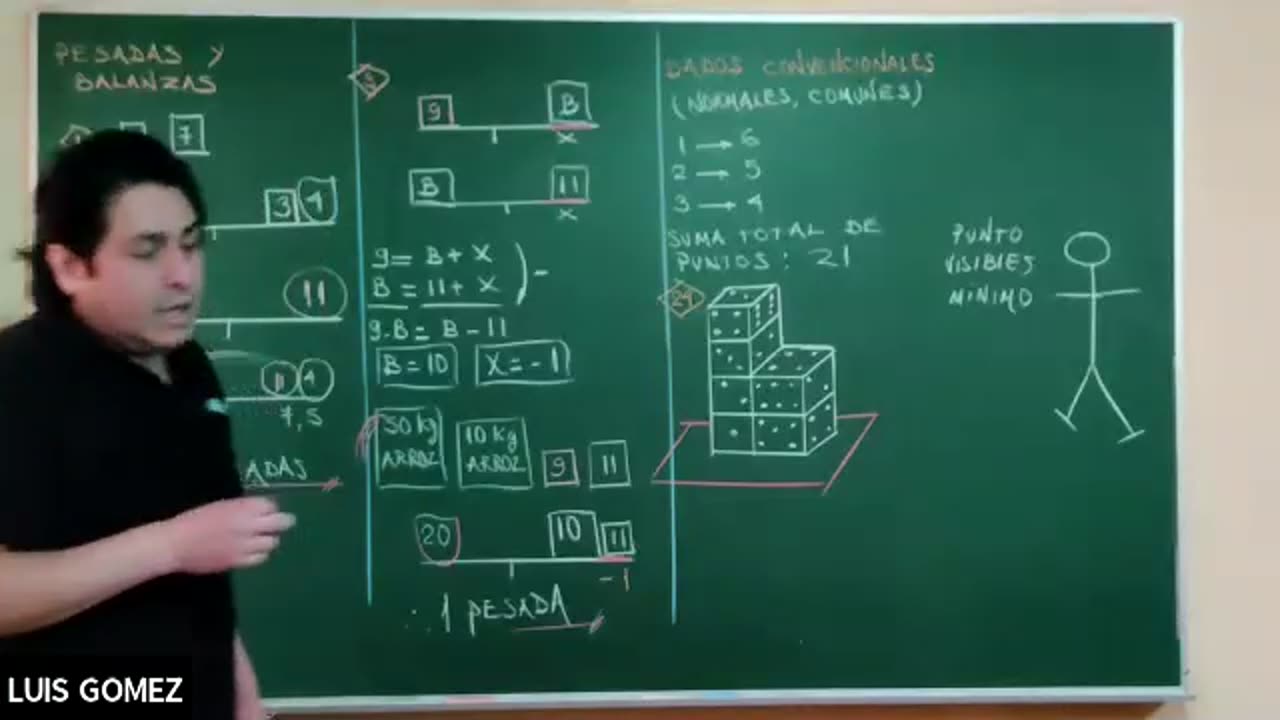 PESADAS Y
BALANZAS
7
3 4
11
11 4
7,5
ADAS
9 B
x
B 11
x
9 = B + X
B = 11 + X
) -
9-B = B - 11
B = 10 X = - 1
50 kg
ARROZ
10 kg
ARROZ
9 11
20 10 11
- 1
∴ 1 PESADA
DADOS CONVENCIONALES
(NORMALES, COMUNES)
1 → 6
2 → 5
3 → 4
SUMA TOTAL DE
PUNTOS : 21
PUNTO
VISIBLES
MINIMO
LUIS GOMEZ